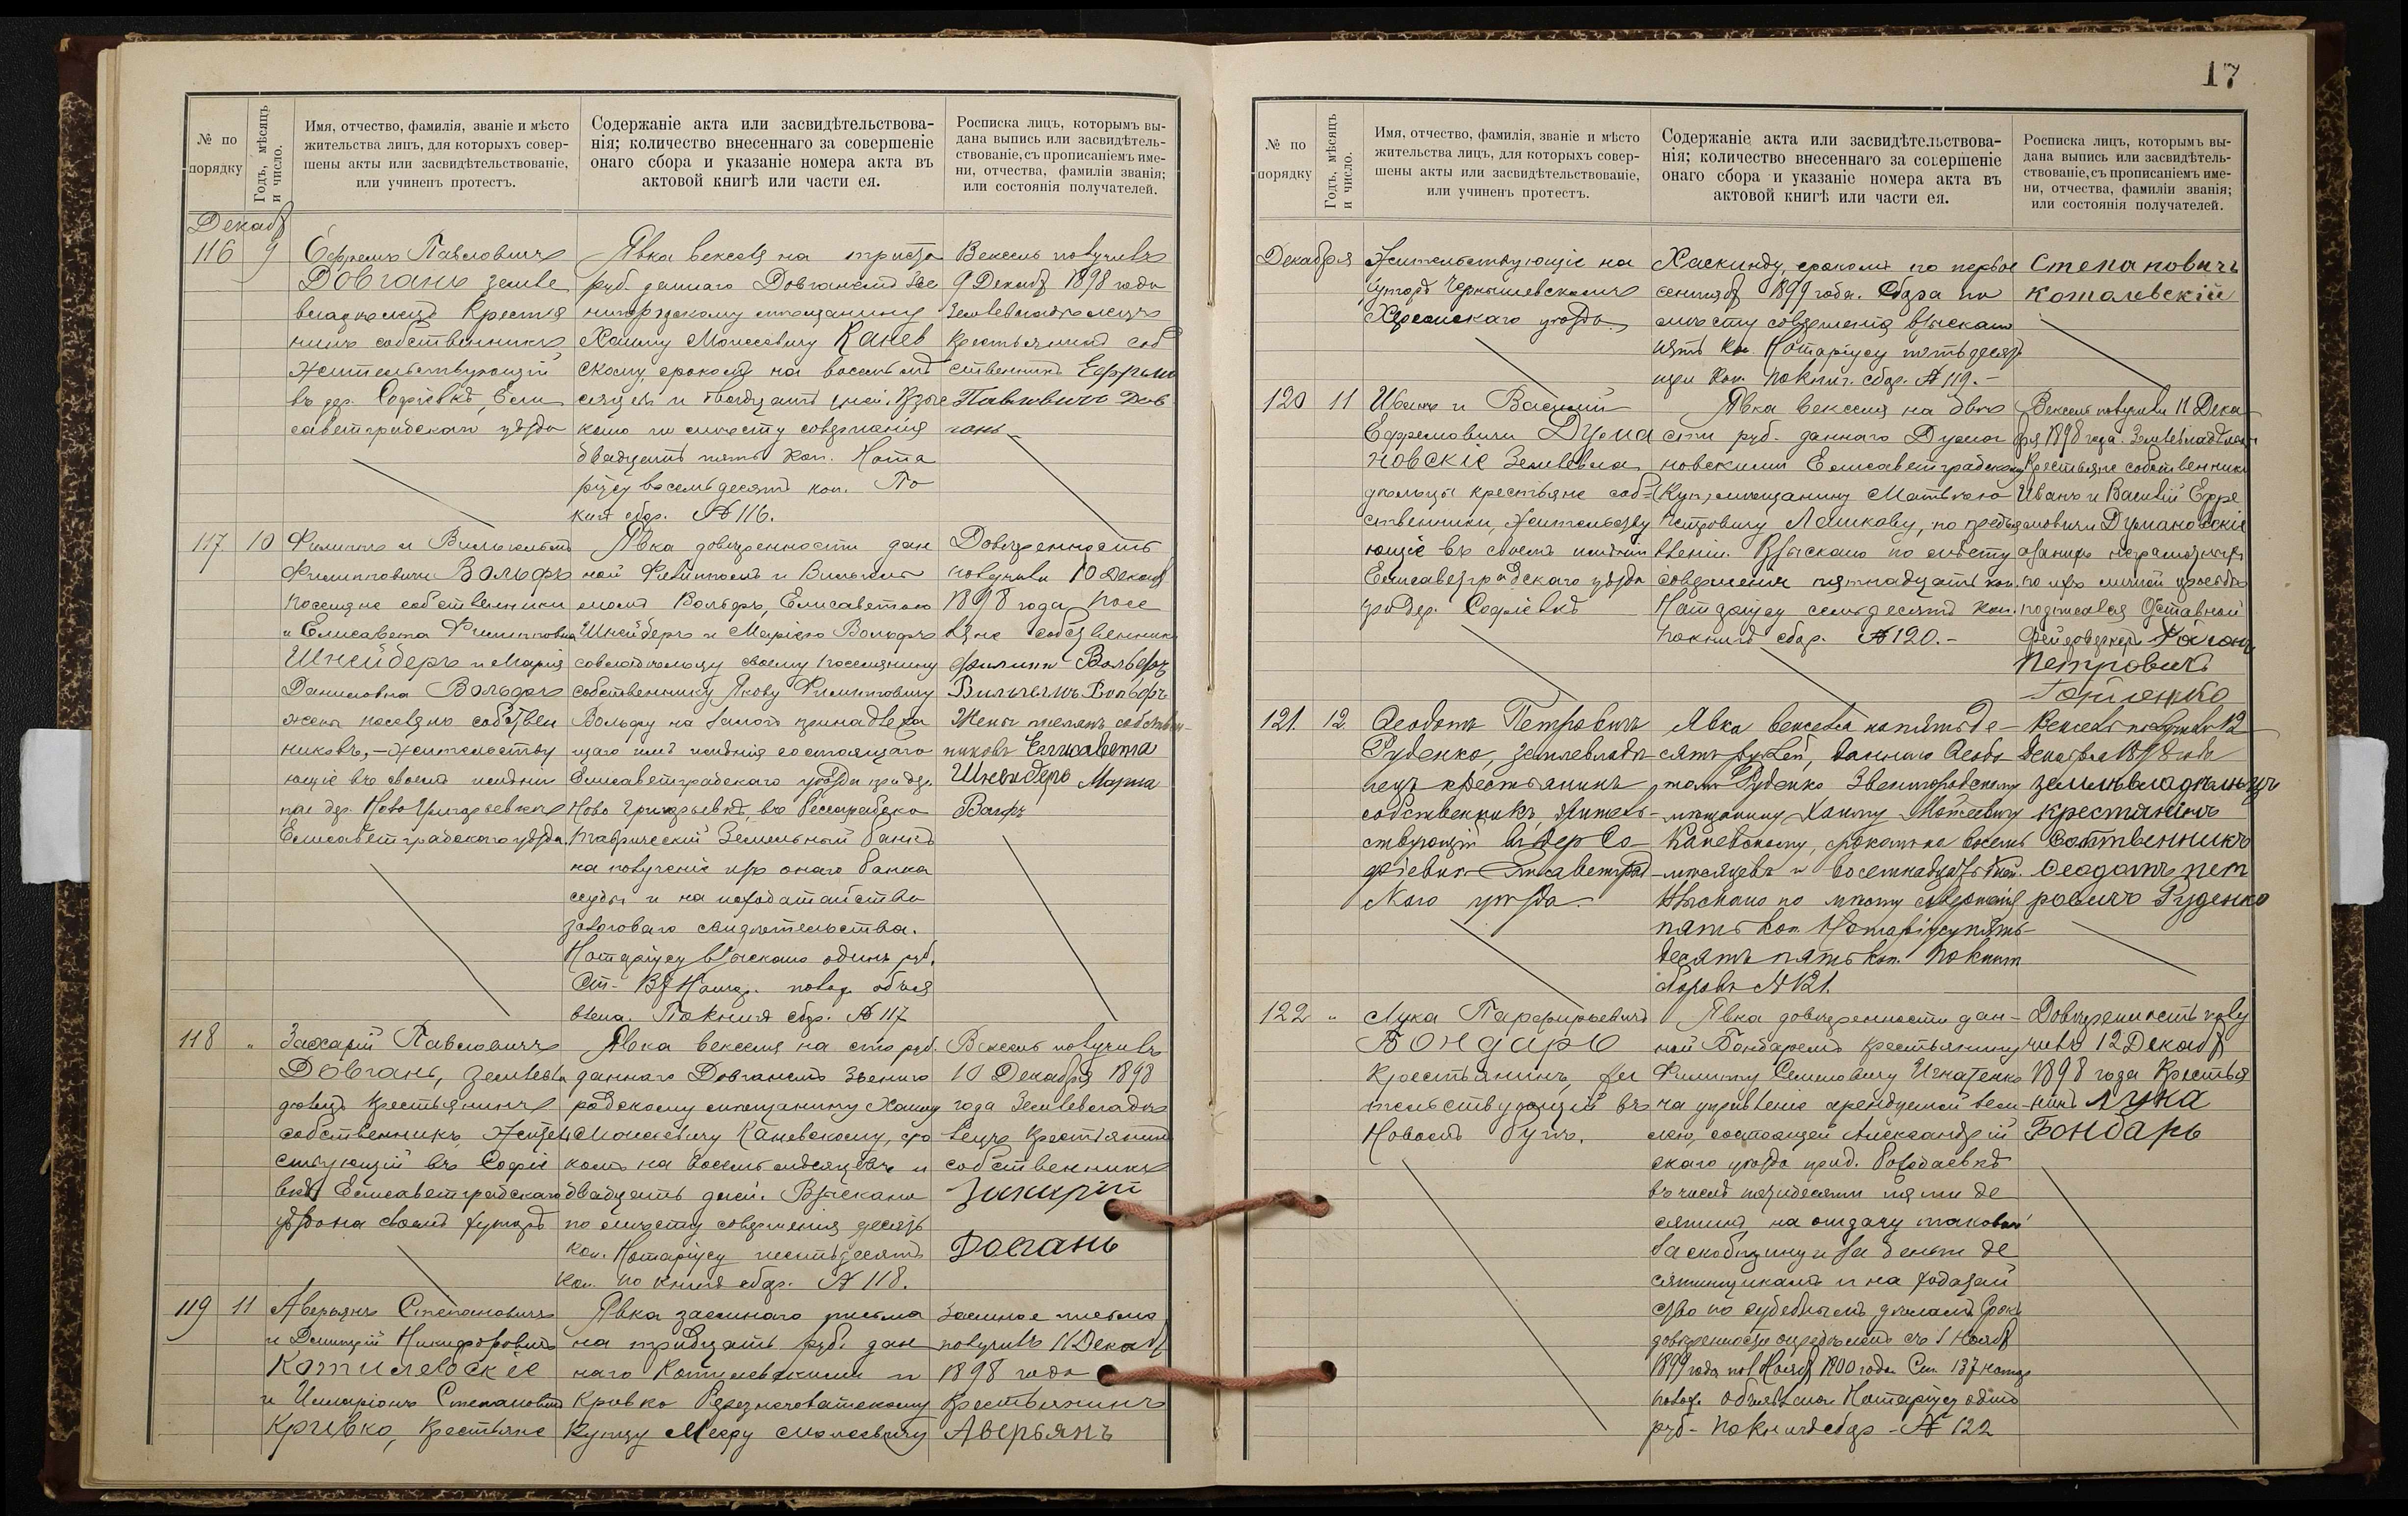 17
№ по порядку
Годъ, мѣсяцъ и число.
Имя, отчество, фамилія, званіе и мѣсто
жительства лицъ, для которыхъ совер-
шены акты или засвидѣтельствованіе,
или учиненъ протестъ.
Содержаніе акта или засвидѣтельствова-
нія; количество внесеннаго за совершеніе
онаго сбора и указаніе номера акта въ
актовой книгѣ или части ея.
Росписка лицъ, которымъ вы-
дана выпись или засвидѣтель-
ствованіе, съ прописаніемъ име-
ни, отчества, фамиліи званія;
или состоянія получателей.
Декабр
116 9
Ефремъ Павловичъ
Довгань земле
владѣлецъ Крестья
нинъ собственникъ
жительствующій
въ дер. Софіевкѣ, Ели
саветградскаго уѣзда
Явка векселя на триста
руб. даннаго Довганемъ Зве
нигородскому мѣщанину
Хаиму Моисеевичу Канев
скому, срокомъ на восемь мѣ
сяцевъ и двадцать дней. Взыс
кано по мѣсту совершенія
двадцать пять коп. Нота
ріусу восемьдесятъ коп. По
книг. сбор. № 116.
Вексель получилъ
9 Декабр 1898 года
Землевладѣлецъ
Крестьянинъ соб
ственникъ Ефремъ
Павловичъ Дов
гань
117 10
Филиппъ и Вильгельмъ
Филипповичи Вольфъ
поселяне собственники
и Елисавета Филипповна
Шнейдеръ и Марія
Даниловна Вольфъ
жены поселянъ собствен
никовъ, жительству
ющіе въ своемъ имѣніи
при дер. Ново Григорьевкѣ
Елисаветградскаго уѣзда
Явка довѣренности дан
ной Филиппомъ и Вильгель
момъ Вольфъ, Елисаветою
Шнейдеръ и Маріею Вольфъ
совладѣльцу своему поселянину
собственнику Якову Филипповичу
Вольфу на залогъ принадлежа
щаго имъ имѣнія состоящаго
Елисаветградскаго уѣзда при дер.
Ново Григорьевкѣ, въ Бессарабско
Таврическій Земельный банкъ
на полученіе изъ онаго банка
ссуды и на ходатайство
залоговаго свидѣтельства.
Нотаріусу взыскано одинъ руб.
Ст. Нотар. полож. объяв
лена. По книгѣ сбор. № 117
Довѣренность
получили 10 Декабр
1898 года посе
ляне собственники
Филиппъ Вольфъ
Вильгелмъ Вольфъ
Жены поселянъ собствен
никовъ Елисавета
Шнейдеръ Марія
Волфъ
118 "
Захарій Павловичъ
Довгань, землевла
дѣлецъ Крестьянинъ
собственникъ, житель
ствующій въ Софіе
вкѣ Елисаветградскаго
уѣзда на своемъ хуторѣ
Явка векселя на сто руб.
даннаго Довганемъ Звениго
родскому мѣщанину Хаиму
Моисеевичу Каневскому, сро
комъ на восемь мѣсяцевъ и
двадцать дней. Взыскано
по мѣсту совершенія десять
коп. Нотаріусу шестьдесятъ
коп. по книгѣ сбор. № 118.
Вексель получилъ
10 Декабря 1898
года Землевладѣ
лецъ Крестьянинъ
собственникъ
Захарій
Довгань
119 11
Аверьянъ Степановичъ
и Дмитрій Никифоровичъ
Котилевскіе
и Иларіонъ Степановичъ
Кривко, Крестьяне
Явка заемнаго письма
на тридцать руб. дан
наго Котилевскими и
Кривко Березнеговатскому
Купцу Мееру Моисеевичу
Заемное письмо
получилъ 11 Декабр
1898 года
Крестьянинъ
Аверьянъ
№ по порядку
Годъ, мѣсяцъ и число.
Имя, отчество, фамилія, званіе и мѣсто
жительства лицъ, для которыхъ совер-
шены акты или засвидѣтельствованіе,
или учиненъ протестъ.
Содержаніе акта или засвидѣтельствова-
нія; количество внесеннаго за совершеніе
онаго сбора и указаніе номера акта въ
актовой книгѣ или части ея.
Росписка лицъ, которымъ вы-
дана выпись или засвидѣтель-
ствованіе, съ прописаніемъ име-
ни, отчества, фамиліи званія;
или состоянія получателей.
Декабря
Жительствующіе на
хуторѣ Чернышевскомъ
Херсонскаго уѣзда
Хаскинду, срокомъ по первое
сентябр 1899 года. Сбора по
мѣсту совершенія взыскано
пять коп. Нотаріусу пятьдесятъ
коп. По книг. сбор. № 119.-
Степановичъ
Котолевскій
120 11
Иванъ и Василій
Ефремовичи Дума
новскіе Землевла
дѣльцы крестьяне соб-
ственники, жительству
ющіе въ своемъ имѣніи
Елисаветградскаго уѣзда
при дер. Софіевкѣ
Явка векселя на двѣ
сти руб. даннаго Думан
новскими Елисаветградскому
Куп, мѣщанину Матвѣю
Петровичу Лошкову, по предъя
вленіи. Взыскано по мѣсту
совершенія пятнадцать коп.
Нотаріусу семьдесятъ коп.
По книгѣ сбор. № 120.-
Вексель получили 11 Дека
бря 1898 года. Землевладѣльцы
Крестьяне собственники
Иванъ и Василій Ефре
мовичи Думановскіе
а за нихъ неграмотныхъ
по ихъ личной просьбѣ
подписался Отставной
Фейерверкеръ
Петровичъ
121. 12
Феодотъ Петровичъ
Руденко, землевладѣ-
лецъ крестьянинъ
собственникъ, житель-
ствующій въ дер Со
фіевкѣ Елисаветград
скаго уѣзда.
Явка векселя на пятьде-
сятъ рублей, даннаго Феодо
томъ Руденко Звенигородскому
мѣщанину Хаиму Моисеевичу
Каневскому, срокомъ на восемь
мѣсяцевъ и восемнадцать дней.
Взыскано по мѣсту совершенія
пять коп. Нотаріусу пять-
десятъ пять коп. По книг
сборовъ № 121.
Вексель получилъ 12
Декабря 1898 года
землевладѣлецъ
крестянинъ
Собственникъ
Феодотъ пет
ровичъ Руденко
122 "
Лука Парфирьевичъ
Бондарь
Крестьянинъ, жи
тельствующій въ
Новомъ Бугѣ.
Явка довѣренности дан-
ной Бондаремъ крестьянину
Филиппу Семеновичу Игнатенко
на управленіе арендуемой зем
лею, состоящей Александрій
скаго уѣзда при д.
въ числѣ пятидесяти пяти де
сятинъ, на отдачу таковой
за скопщину и за деньги де
сятинщикамъ и на ходатай
ство по судебнымъ дѣламъ Срокъ
довѣренности опредѣленъ съ 1 Ноябр
1899 года по 1 Ноябр 1900 года. Ст. 137 нотар
полож. объявлена. Нотаріусу одинъ
руб - По книгѣ сбор - № 122
Довѣренность полу
чилъ 12 Декабр
1898 года Крестья
нинъ Лука
Бондарь